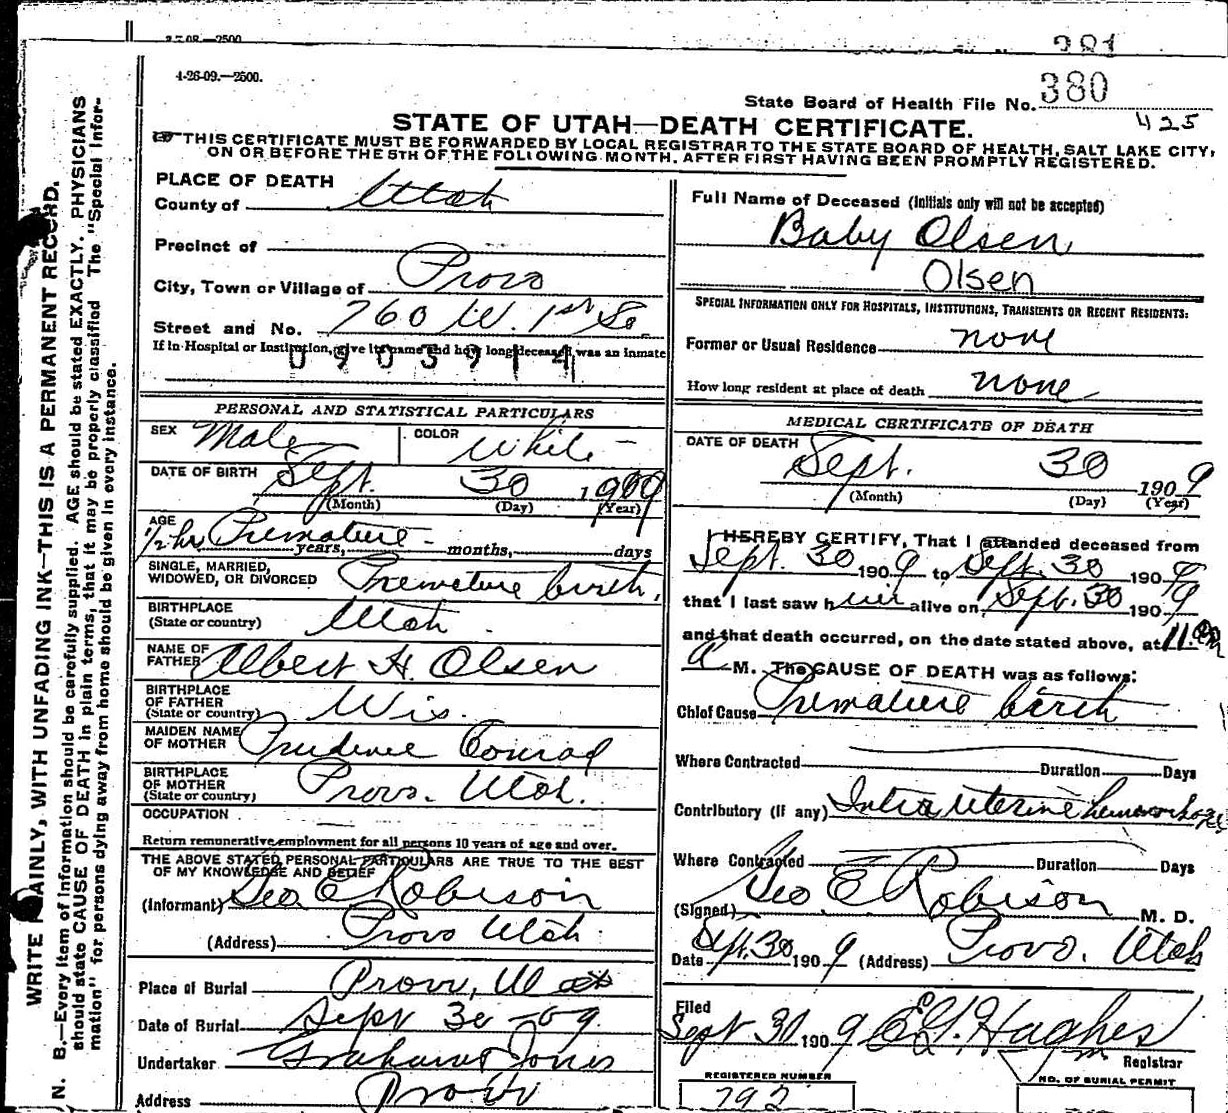 27 08.—2500
381
4-26-09.—2500.
State Board of Health File No. 380
425
STATE OF UTAH—DEATH CERTIFICATE.
THIS CERTIFICATE MUST BE FORWARDED BY LOCAL REGISTRAR TO THE STATE BOARD OF HEALTH, SALT LAKE CITY,
ON OR BEFORE THE 5TH OF THE FOLLOWING MONTH. AFTER FIRST HAVING BEEN PROMPTLY REGISTERED.
WRITE PLAINLY, WITH UNFADING INK—THIS IS A PERMANENT RECORD.
N. B.—Every item of information should be carefully supplied. AGE should be stated EXACTLY. PHYSICIANS
should state CAUSE OF DEATH in plain terms, that it may be properly classified The "Special Infor-
mation" for persons dying away from home should be given in every instance.
PLACE OF DEATH
County of Utah
Precinct of
City, Town or Village of Provo
Street and No. 760 W. 1st So.
If in Hospital or Institution, give its name and how long deceased was an inmate
0903914
PERSONAL AND STATISTICAL PARTICULARS
SEX Male COLOR White
DATE OF BIRTH Sept. 30 1909
(Month) (Day) (Year)
AGE
1/2 hr Premature years, months, days
SINGLE, MARRIED,
WIDOWED, OR DIVORCED Premature birth.
BIRTHPLACE
(State or country) Utah
NAME OF
FATHER Albert H. Olsen
BIRTHPLACE
OF FATHER
(State or country) Wis.
MAIDEN NAME
OF MOTHER Prudence Conrad
BIRTHPLACE
OF MOTHER
(State or country) Provo. Utah.
OCCUPATION
Return remunerative employment for all persons 10 years of age and over.
THE ABOVE STATED PERSONAL PARTICULARS ARE TRUE TO THE BEST
OF MY KNOWLEDGE AND BELIEF
(Informant) Geo. E. Robison
(Address) Provo Utah.
Place of Burial Provo, Utah
Date of Burial Sept 30 -09.
Undertaker Graham Jones
Address Provo
Full Name of Deceased (Initials only will not be accepted)
Baby Olsen
Olsen
SPECIAL INFORMATION ONLY FOR HOSPITALS, INSTITUTIONS, TRANSIENTS OR RECENT RESIDENTS:
Former or Usual Residence none
How long resident at place of death none
MEDICAL CERTIFICATE OF DEATH
DATE OF DEATH
Sept. 30 1909
(Month) (Day) (Year)
I HEREBY CERTIFY, That I attended deceased from
Sept. 30 1909 to Sept. 30 1909
that I last saw him alive on Sept. 30 1909
and that death occurred, on the date stated above, at 11.
a M. The CAUSE OF DEATH was as follows:
Chief Cause Premature birth
Where Contracted Duration Days
Contributory (if any) Intra uterine hemorrhage
Where Contracted Duration Days
(Signed) Geo. E. Robison M. D.
Date Sept. 30 1909 (Address) Provo. Utah
Filed
Sept 30 1909 Hughes
Registrar
REGISTERED NUMBER
792
NO. OF BURIAL PERMIT